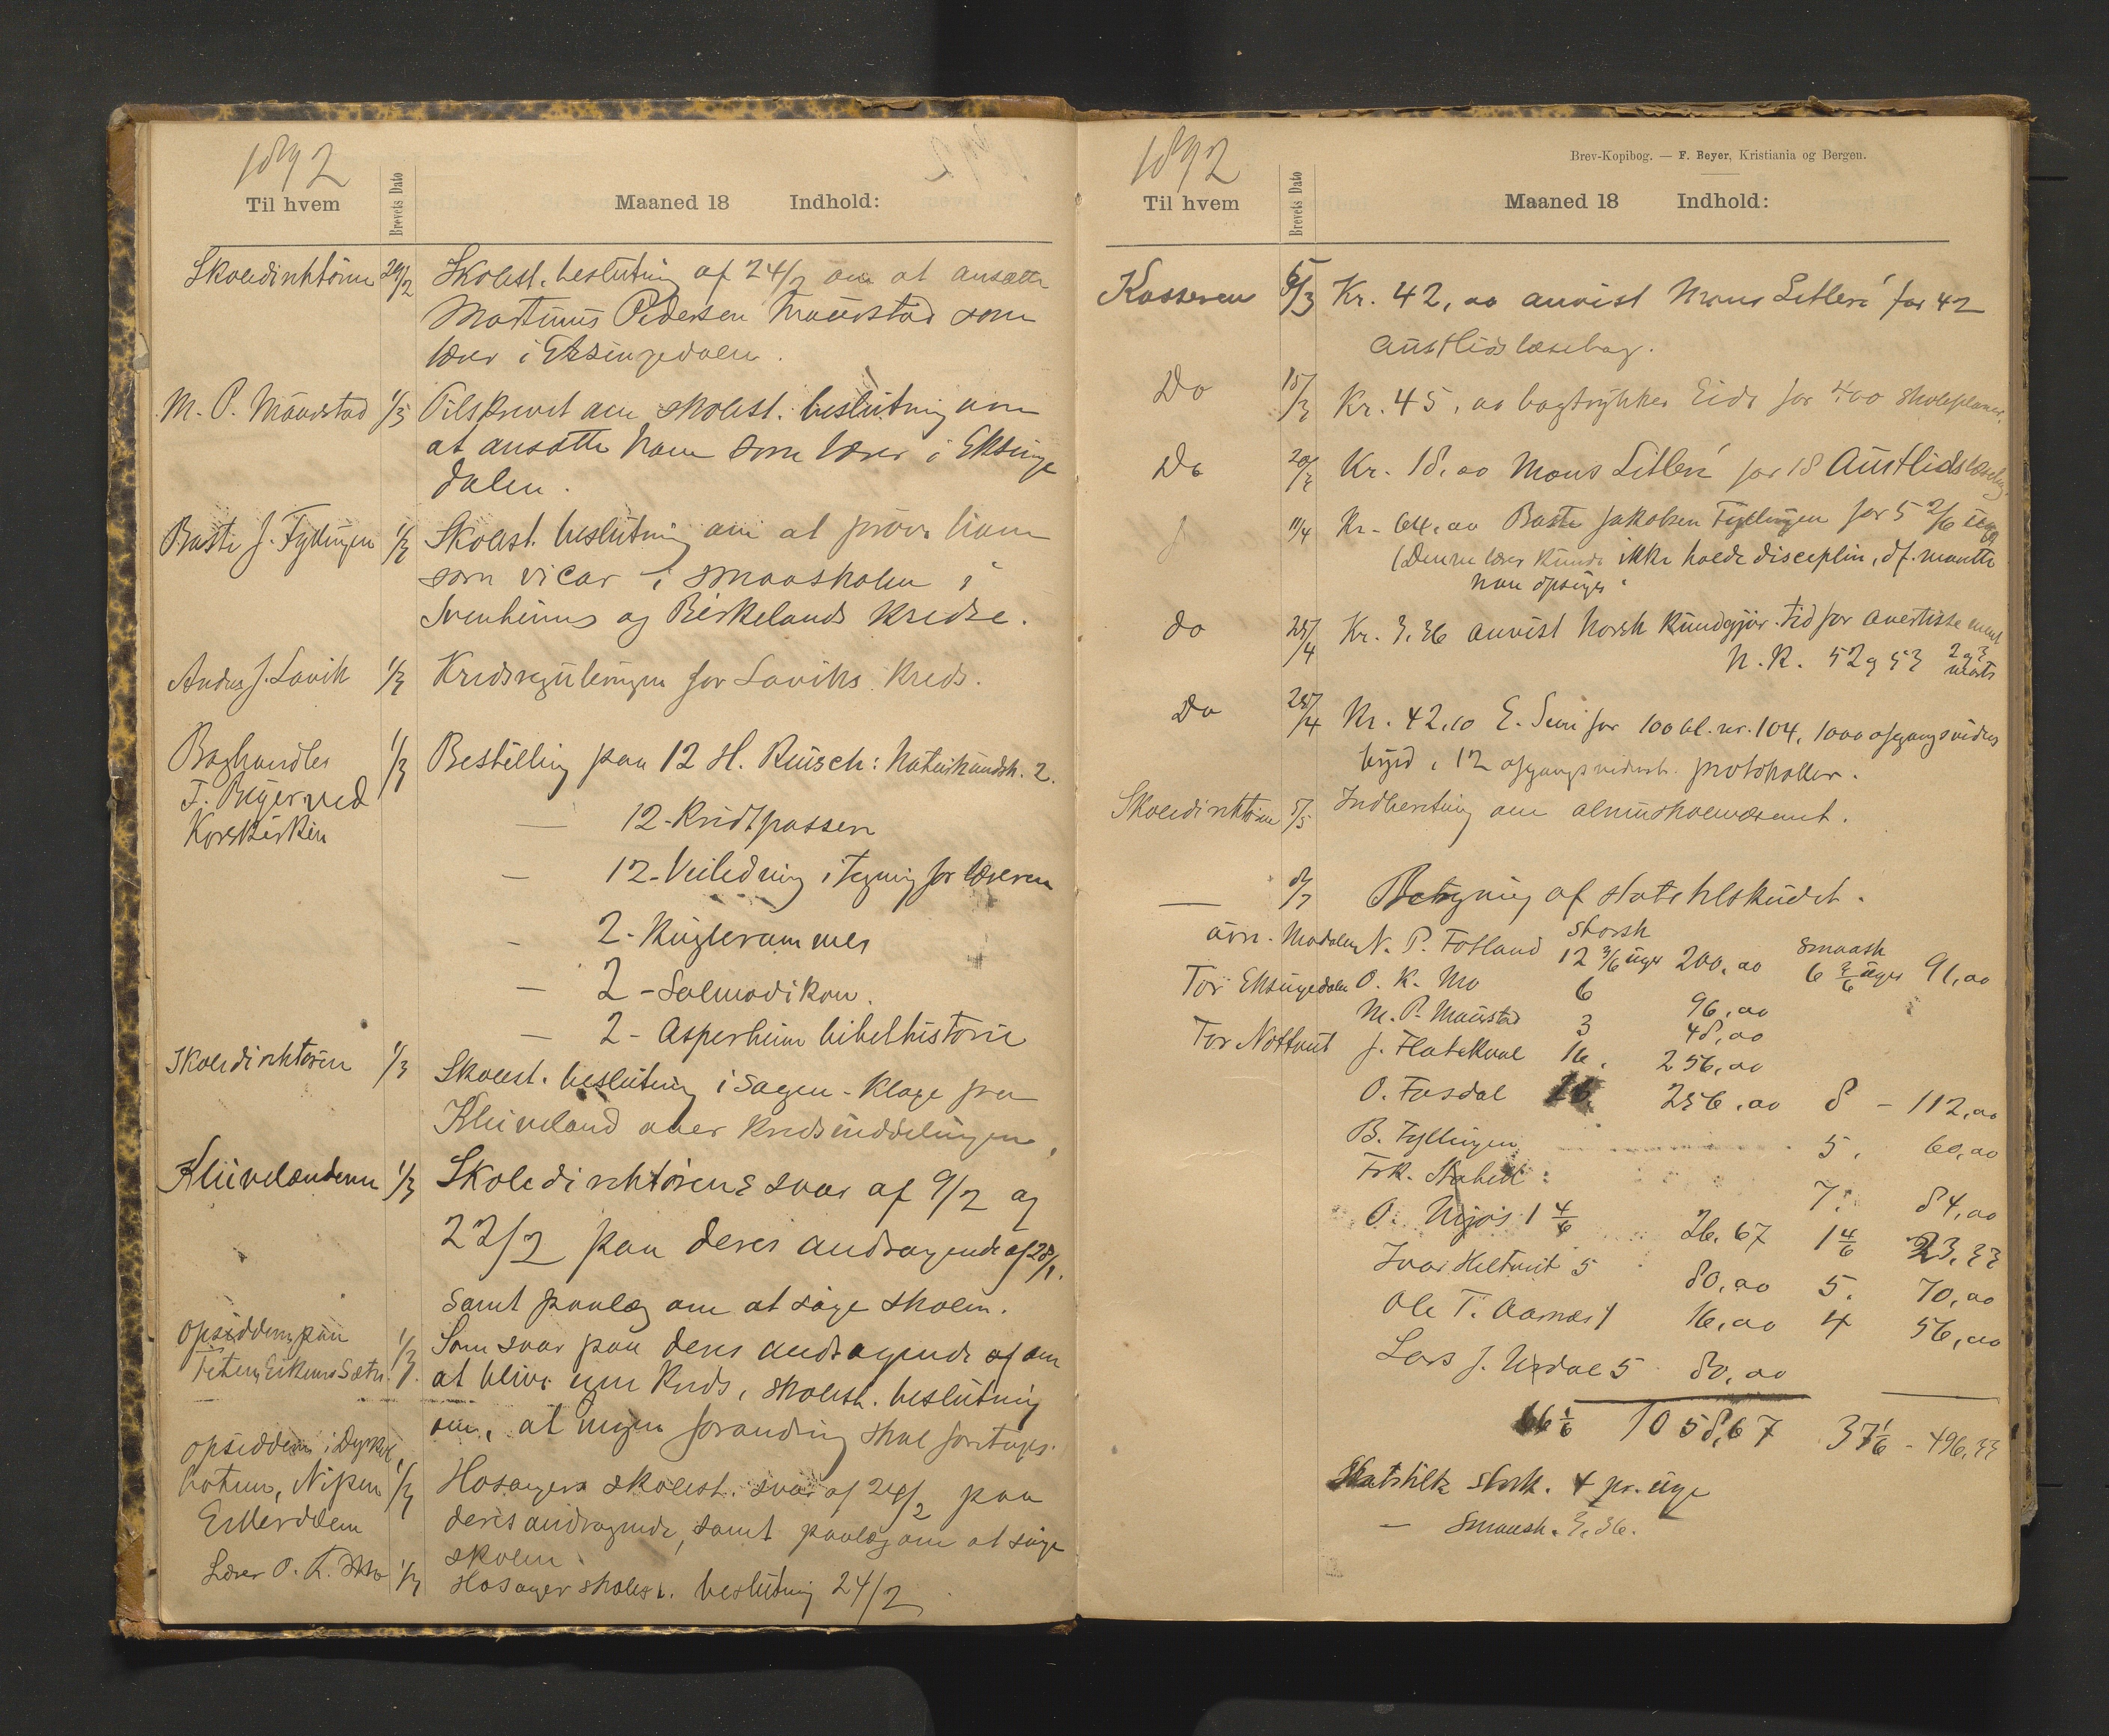 1892
Til hvem
Brevets Dato
Maaned 18 Indhold:
Skoledirektøren 29/2 Skolest. beslutning af 24/2 om at ansætte
Martinus Pedersen Maurstad som
lærer i Eksingedalen.
M. P. Maurstad 1/3 Tilskrevet om skolest. beslutning om
at ansætte ham som lærer i Eksinge
dalen.
Baste J. Fyllingen 1/3 Skolest. beslutning om at prøve ham
som vicar i smaaskolen i
Svenheims og Birkelands kredse.
Anders J. Lavik 1/3 Kredsreguleringen for Laviks kreds.
Boghandler 1/3 Bestilling paa 12 H. Reusch: Naturkundsk. 2.
F. Beyer ved
Korskirken
— 12 - Kridtpassere
— 12 - Veiledning i Tegning for læreren
- 2 - Kuglerammer
— 2 - Salmodikon.
— 2 - Asperheim bibelhistorie
Skoledirektøren 1/3 Skolest. beslutning i sagen - klage fra
Kluveland over kredsinddelingen.
Kluvelænderne 1/3 Skoledirektørens svar af 9/2 og
22/2 paa deres andragende af 28/1.
samt paalæg om at søge skolen.
Opsidderne paa 1/3 Som svar paa deres andragende af om
at blive egen kreds, skolest. beslutning
om, at ingen forandring skal foretages.
Opsiddere i
Nipen 1/3 Hosanger skolest. svar af 24/2 paa
deres andragende, samt paalæg om at søge
skolen.
Lærer O. K. Mo 1/3 Hosanger skolest. beslutning 24/2
1892
Brev-Kopibog. — F. Beyer, Kristiania og Bergen.
Til hvem
Brevets Dato
Maaned 18 Indhold:
Kassereren 5/3 Kr. 42,00 anvist Mons Litleré for 42
Austlids læsebog.
Do 15/3 Kr. 45,00 bogtrykker Eide for 400 skoleplaner.
Do 20/3 Kr. 18,00 Mons Litleré for 18 Austlids læsebog.
11/4 Kr. 64,00 Baste Jakobsen Fyllingen for 5 2/6 uge
(Denne lærer kunde ikke holde disceplin, df. maatte
han opsiges.
do 25/4 Kr. 3,36 anvist Norsk Kundgjør. tid for avertissement
N. K. 52 og 53 2 og 3 marts
Do 25/4 Kr. 42,10 E. Sem for 100 bl. nr. 104, 1000 afgangsvidnes
byrd, 12 afgangsvidnesb. protokoller.
Skoledirektøren 5/5 Indberetning om almueskolevæsenet.
— 8/7 Beregning af statstilskudet.
storsk smaask
Modalen N. P. Fotland 12 3/6 uger 200,00 6 3/6 uger 91,00
For Eksingedalen O. K. Mo 6 96,00
M. P. Maurstad 3 48,00
For Nottveit J. Flatekval 16. 256,00
O. Fosdal 16 256,00 8 - 112,00
B. Fyllingen 5. 60,00
Frk. 7. 84,00
O. Mjøs 1 4/6 26,67 1 4/6 23,33
Ivar Heltveit 5 80,00 5. 70,00
Ole T. Aarnes 1 16,00 4 56,00
Lars J. Urdal 5 80,00
66 1/6 1058,67 37 1/6 - 496,33
Statstilsk. storsk. 4 pr. uge
— smaask. 3,36.